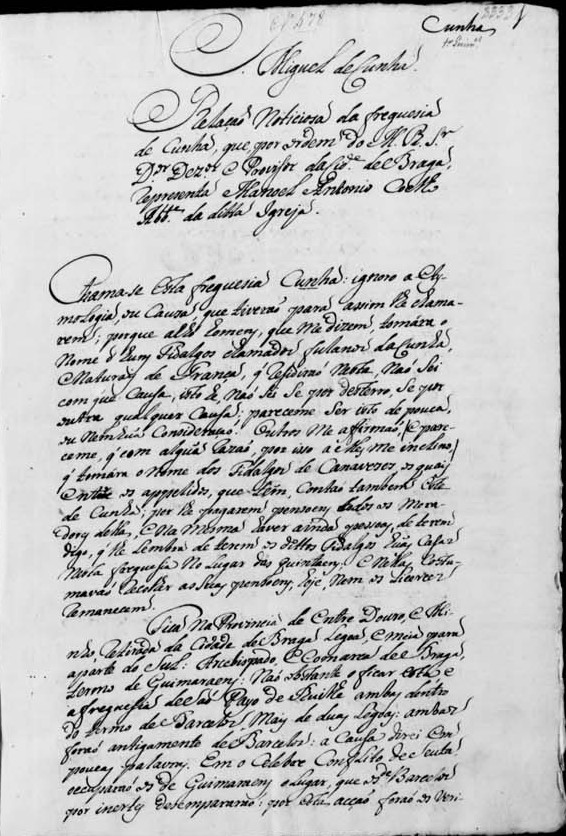 Cunha
S. Miguel de Cunha.
Relação Noticiosa da freguesia
de Cunha, que por ordem do M. R. Sr.
Dor. Dezor. e Provisor da Cide. de Braga,
reprezenta Manoel Antonio Coelho
Abbe. da ditta Igreja.
Chama-se esta freguesia Cunha: ignoro a Ety-
mologia, ou Cauza, que tiverão para assim lhe chama-
rem; porque alguns homens, que me dizem, tomára o
Nome de huns Fidalgos chamados fulanos da Cunha,
Naturaes de França, q rezidirão nella, Não Sei
com que Cauza, isto hé, Não Sei Se por desterro, Se por
outra qualquer Cauza: pareceme Ser isto de pouca,
ou Nenhũa Consideração. Outros me affirmão, (e pare-
ceme, q com algũa razão, por isso a elles me inclino)
q tomára o Nome dos Fidalgos de Canavezes, os quaes
entre os appelidos, que tem, contão tambem este
de Cunha; por lhe pagarem pensoens todos os Mora-
dores della, e Na mesma haver ainda pessoas, de verem
digo, q se lembrão de terem os dittos Fidalgos huas Cazas
Nesta freguesia No lugar das quintaens, e Nella Costu-
mavão recolher as Suas pensoens, hoje, Nem os alicerces
remanecem.
Fica Na Provincia de Entre Douro, e Mi-
nho, retirada da Cidade de Braga Legoa, e meia para
a parte do Sul: Arcebispado, e Comarca de Braga,
termo de Guimaraens: Não obstante o ficar esta e
a freguesia de São Payo de Ruilhe ambas dentro
do termo de Barcelos Mais de duas Legoas: ambas
forão antigamente de Barcelos: a Cauza direi em
poucas palavras. Em o Celebre Conflito de Ceuta
occuparão os de Guimaraens o Lugar, que os de Barcelos
por inertes dezempararão: por esta acção forão os Veri-